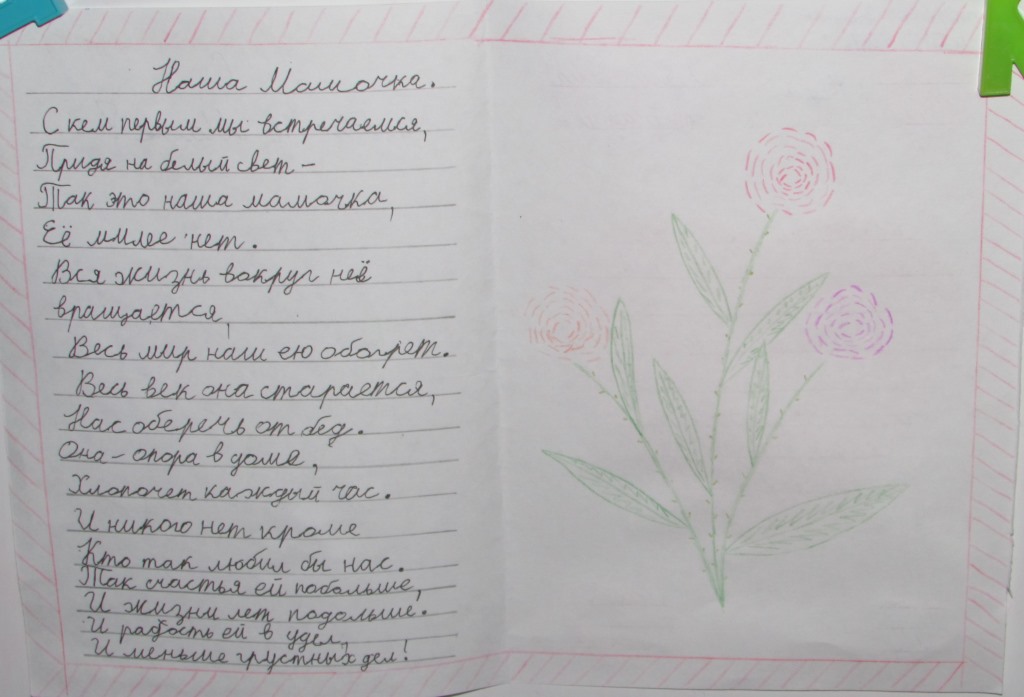 Наша Мамочка.
С кем первым мы встречаемся,
Придя на белый свет –
Так это наша мамочка,
Её милее нет.
Вся жизнь вокруг неё
вращается,
Весь мир наш ею обогрет.
Весь век она старается,
Нас оберечь от бед.
Она – опора в доме,
Хлопочет каждый час.
И никого нет кроме
Кто так любил бы нас.
Так счастья ей побольше,
И жизни лет подольше.
И радость ей в удел,
И меньше грустных дел!